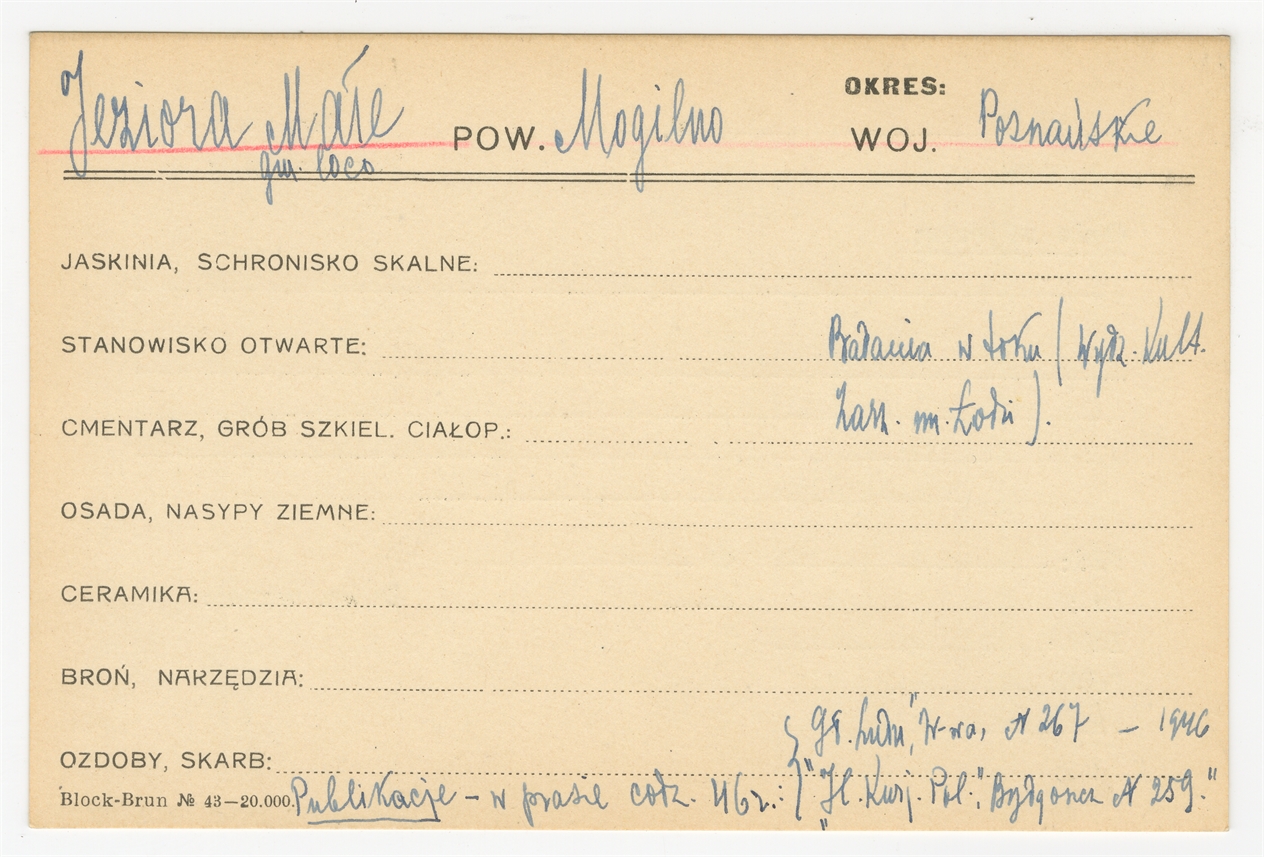 OKRES:
Jeziora Małe POW. Mogilno WOJ. Poznańskie
gm. loco
JASKINIA, SCHRONISKO SKALNE:
STANOWISKO OTWARTE: Badania w toku (Wydz. Kult.
CMENTARZ, GRÓB SZKIEL. CIAŁOP.: Zarz. m. Łodzi).
OSADA, NASYPY ZIEMNE:
CERAMIKA:
BROŃ, NARZĘDZIA:
"Gł. Ludu", W-wa, N 267 – 1946
OZDOBY, SKARB:
Block-Brun № 43—20.000. Publikacje – w prasie codz. 46 r.: "Il. Kurj. Pol.", Bydgoszcz N 259."